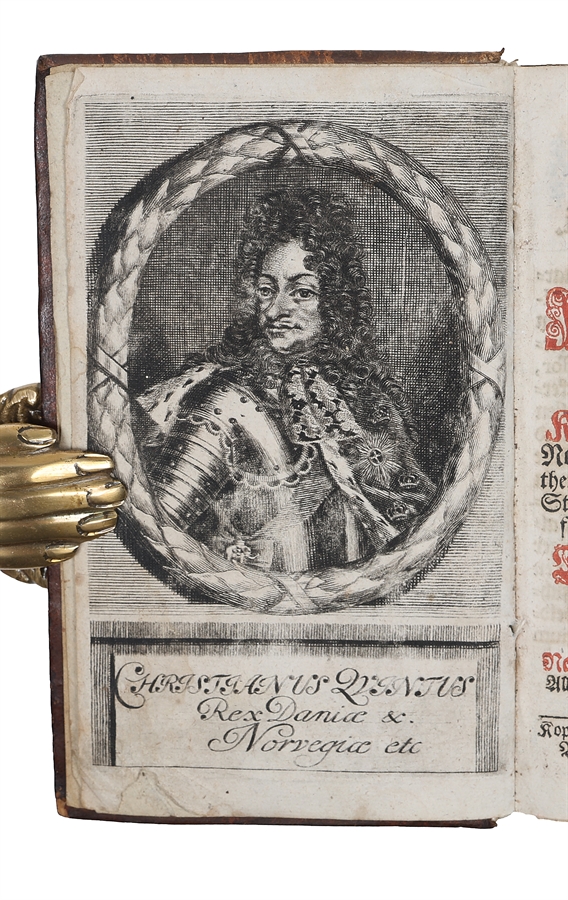 CHRISTIANUS QVINTUS
Rex Daniæ &c.
Norvegiæ etc
No
the
St
f
No
All
Kop